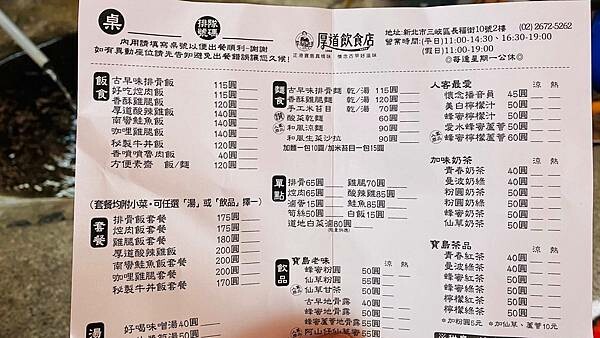 桌
排隊號碼
內用請填寫桌號以便出餐順利~謝謝
如有異動座位請先告知避免出餐錯誤讓您久候!
厚道飲食店
正港寶島真情味 懷念古早好滋味
地址:新北市三峽區長福街10號2樓 (02) 2672-5262
營業時間:(平日)11:00-14:30、16:30-19:00
(假日)11:00-19:00
◎每逢星期一公休◎
飯食
古早味排骨飯 115元
好吃焢肉飯 115元
香酥雞腿飯 120元
厚道酸辣雞飯 140元
南蠻鮭魚飯 140元
咖哩雞腿飯 140元
秘製牛丼飯 120元
香噴噴魯肉飯 40元
方便素齋 飯/麵 60元
(套餐均附小菜,可任選「湯」或「飲品」擇一)
套餐
排骨飯套餐 175元
焢肉飯套餐 175元
雞腿飯套餐 180元
厚道酸辣雞飯 200元
南蠻鮭魚飯套餐 200元
咖哩雞飯套餐 170元
秘製牛丼飯套餐 170元
湯
好喝味噌湯40元
麵食
古早味排骨麵 乾/湯 115元
香酥雞腿麵 乾/湯 120元
手工水苔目 乾/湯 70元
酸菜乾麵 60元
和風涼麵 90元
和風生菜沙拉 90元
加麵一包10圓/加米苔目一包15圓
單點
排骨65圓 雞腿70圓
焢肉65圓 酸辣雞85圓
滷管15圓 鮭魚85圓
筍絲50圓 白飯15圓
道地白菜滷80圓
飲品
寶島老味 涼 熱
蜂蜜粉圓 50圓
仙草粉圓 55圓
仙草甘茶 50圓
古早地骨露 40圓
蜂蜜地骨露 50圓
蜂蜜蘆薈地骨露 55圓
阿山仔仙草蜜 55圓
人客最愛 涼 熱
懷念播音員 45圓
美白檸檬汁 50圓
蜂蜜檸檬汁 50圓
愛水蜂蜜蘆薈 50圓
蜂蜜檸檬蘆薈 60圓
加味奶茶
青春奶茶 40圓
曼波奶綠 40圓
粉圓奶茶 50圓
粉圓奶綠 50圓
蜂蜜奶茶 50圓
仙草奶茶 50圓
寶島茶品 涼 熱
青春紅茶 40圓
曼波綠茶 40圓
蜂蜜紅茶 50圓
蜂蜜綠茶 50圓
檸檬紅茶 50圓
檸檬綠茶 50圓
*加粉圓5元 *加仙草、蘆薈10元